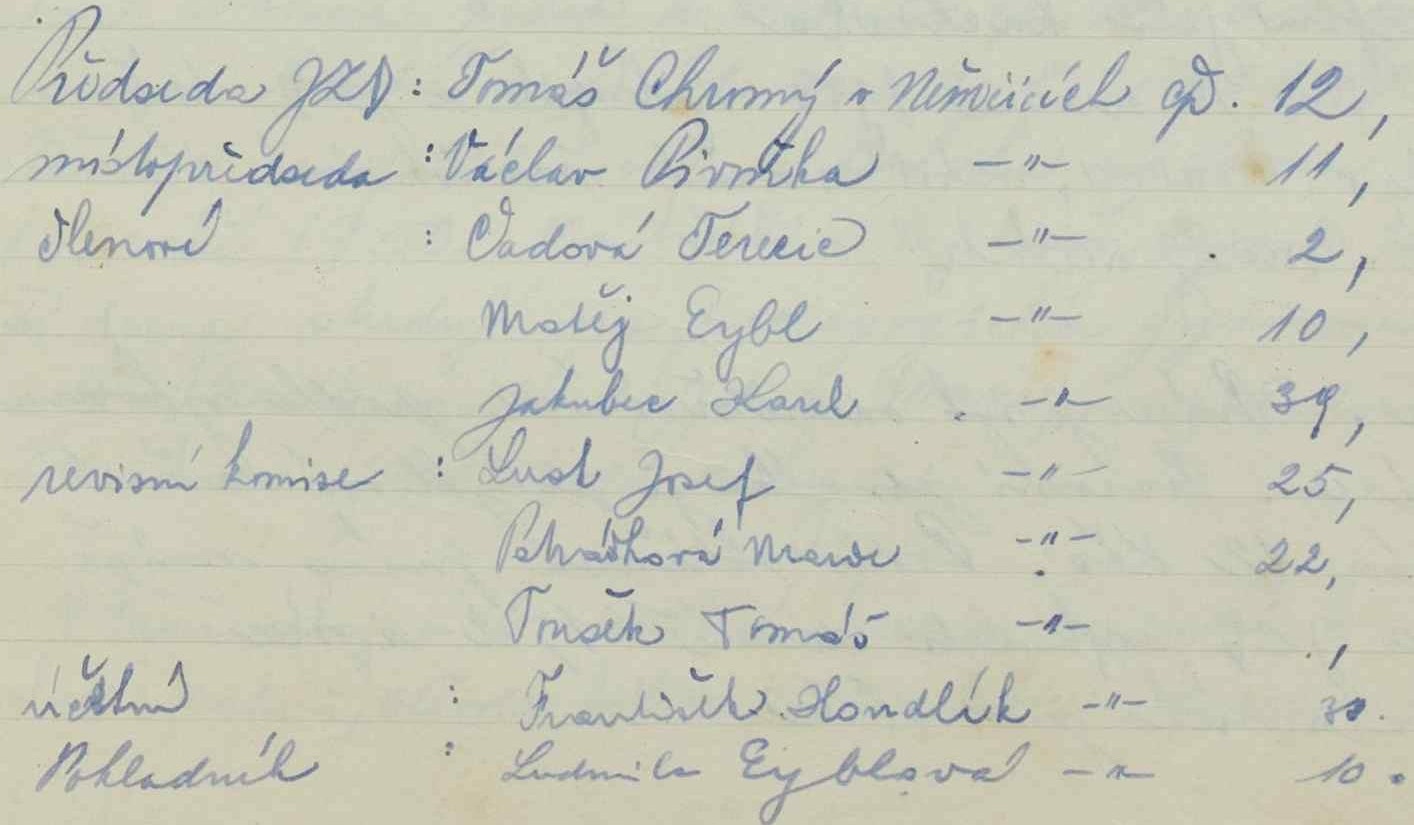 Předseda JZD : Tomáš Chromý v Němčicích čp. 12,
místopředseda : Václav Pivnička -"- 11,
členové : Vadová Terezie -"- 2,
Matěj Eybl -"- 10,
Jakubec Karel -"- 39,
revisní komise : Lust Josef -"- 25,
Petrášková Marie -"- 22,
Toušek Tomáš -"- ,
účetní : František Hondlík -"- 30.
Pokladník : Ludmila Eyblová -"- 10.